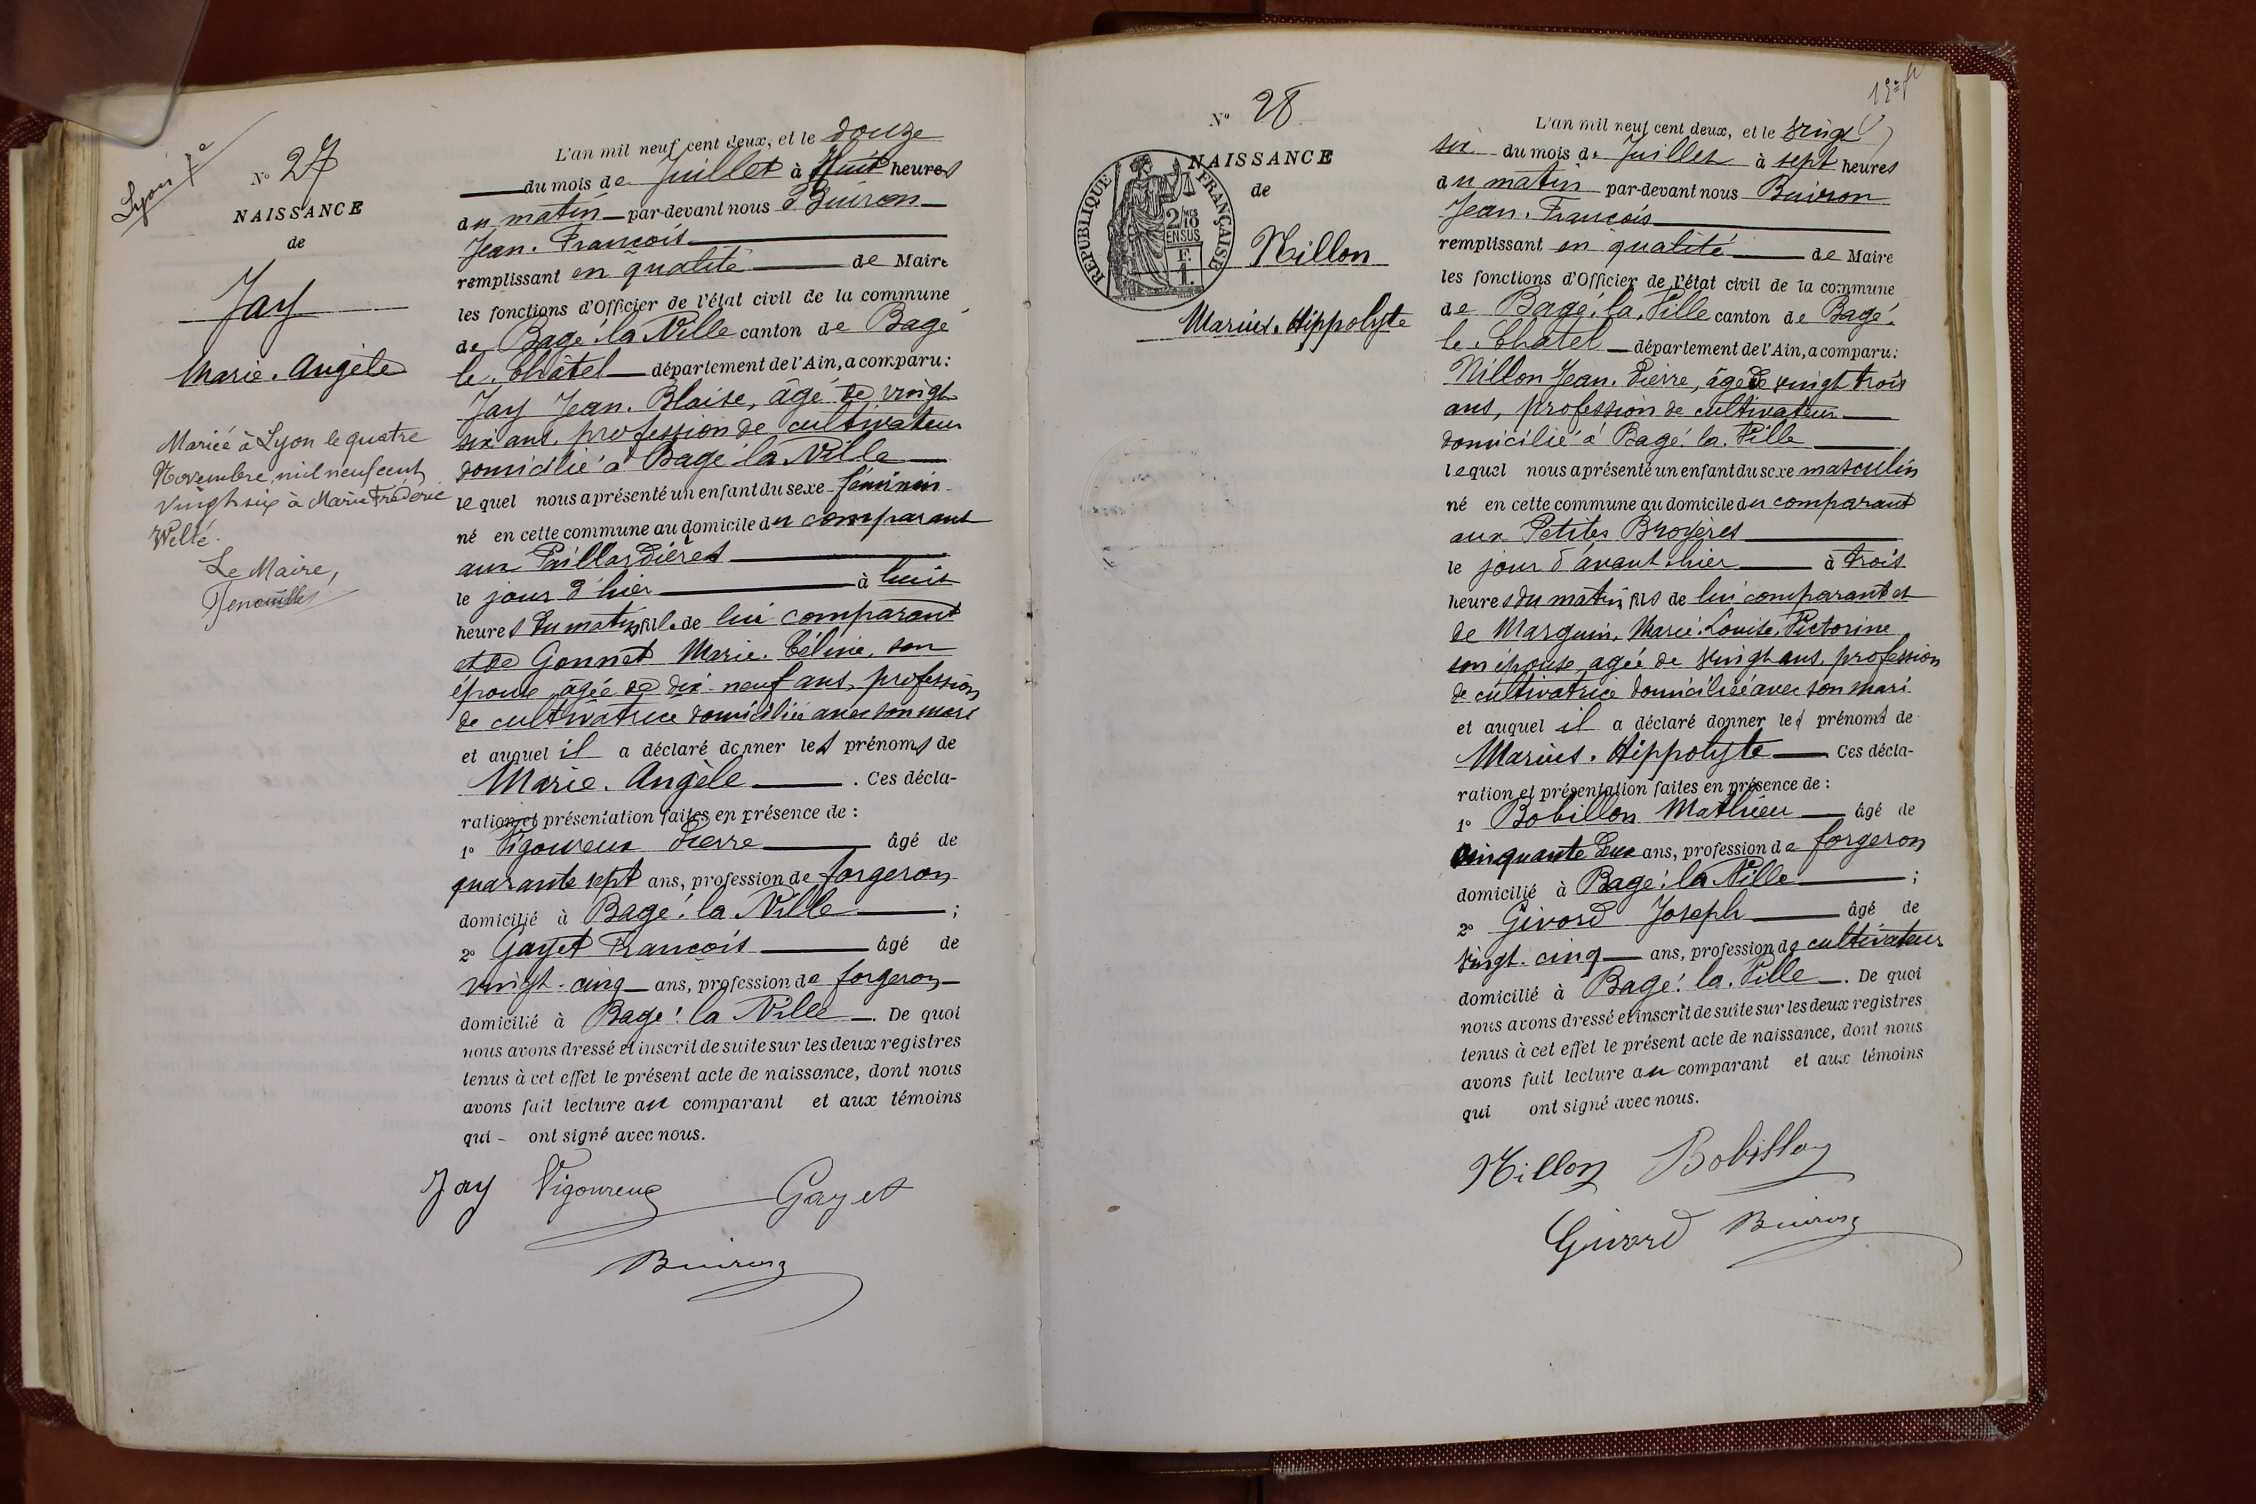 Lyon 7e
No 27
NAISSANCE
de
Jay
Marie. Angèle
Mariée à Lyon le quatre
Novembre mil neuf cent
vingt six à Marie Frédéric
Welté.
Le Maire,
L'an mil neuf cent deux, et le douze
du mois de Juillet à Huit heures
du matin par-devant nous Buiron
Jean. François
remplissant en qualité de Maire
les fonctions d'Officier de l'état civil de la commune
de Bagé. la Ville canton de Bagé
le. Châtel département de l'Ain, a comparu :
Jay Jean. Blaise, âgé de vingt
six ans, profession de cultivateur
domicilié à Bagé la Ville
lequel nous a présenté un enfant du sexe féminin
né en cette commune au domicile du comparant
aux Paillardières
le jour d'hier à huit
heures du matin fille de lui comparant
et de Gonnet Marie. Céline, son
épouse âgée de dix-neuf ans, profession
de cultivatrice domiciliée avec son mari
et auquel il a déclaré donner les prénoms de
Marie. Angèle. Ces décla-
ration et présentation faites en présence de :
1o Vigoureux Pierre âgé de
quarante sept ans, profession de forgeron
domicilié à Bagé. la Ville ;
2o Gayet François âgé de
vingt-cinq ans, profession de forgeron
domicilié à Bagé. la Ville. De quoi
nous avons dressé et inscrit de suite sur les deux registres
tenus à cet effet le présent acte de naissance, dont nous
avons fait lecture au comparant et aux témoins
qui - ont signé avec nous.
Jay Vigoureux Gayet
Buiron
No 28
NAISSANCE
de
RÉPUBLIQUE FRANÇAISE
2/10 EN SUS
1 F.
Nillon
Marius. Hippolyte
L'an mil neuf cent deux, et le vingt
six du mois de Juillet à sept heures
du matin par-devant nous Buiron
Jean. François
remplissant en qualité de Maire
les fonctions d'Officier de l'état civil de la commune
de Bagé. la. Ville canton de Bagé.
le. Châtel département de l'Ain, a comparu :
Nillon Jean. Pierre, âgé de vingt trois
ans, profession de cultivateur
domicilié à Bagé. la. Ville
lequel nous a présenté un enfant du sexe masculin
né en cette commune au domicile du comparant
aux Petites Broyères
le jour d'avant hier à trois
heures du matin fils de lui comparant et
de Marguin, Marie. Louise. Victorine
son épouse, agée de vingt ans, profession
de cultivatrice domiciliée avec son mari
et auquel il a déclaré donner les prénoms de
Marius. Hippolyte Ces décla-
ration et présentation faites en présence de :
1o Bobillon Mathieu âgé de
cinquante deux ans, profession de forgeron
domicilié à Bagé. la Ville ;
2o Givord Joseph âgé de
vingt-cinq ans, profession de cultivateur
domicilié à Bagé. la. Ville. De quoi
nous avons dressé et inscrit de suite sur les deux registres
tenus à cet effet le présent acte de naissance, dont nous
avons fait lecture au comparant et aux témoins
qui ont signé avec nous.
Nillon Bobillon
Givord Buiron